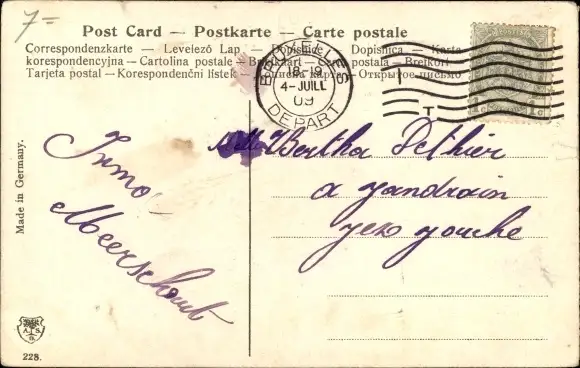 7=
Post Card — Postkarte — Carte postale
Correspondenzkarte — Levelező Lap — Dopisnice — Dopisnica — Karta
korespondencyjna — Cartolina postale — Briefkaart — Carta postala — Brefkort
Tarjeta postal — Korespondenční lístek — Открытое письмо
BRUXELLES
18-19
4-JUILL
09
DEPART
T
Made in Germany.
Irma
Meerschout
Mlle Bertha Pethier
a jandrain
A.S.
228.